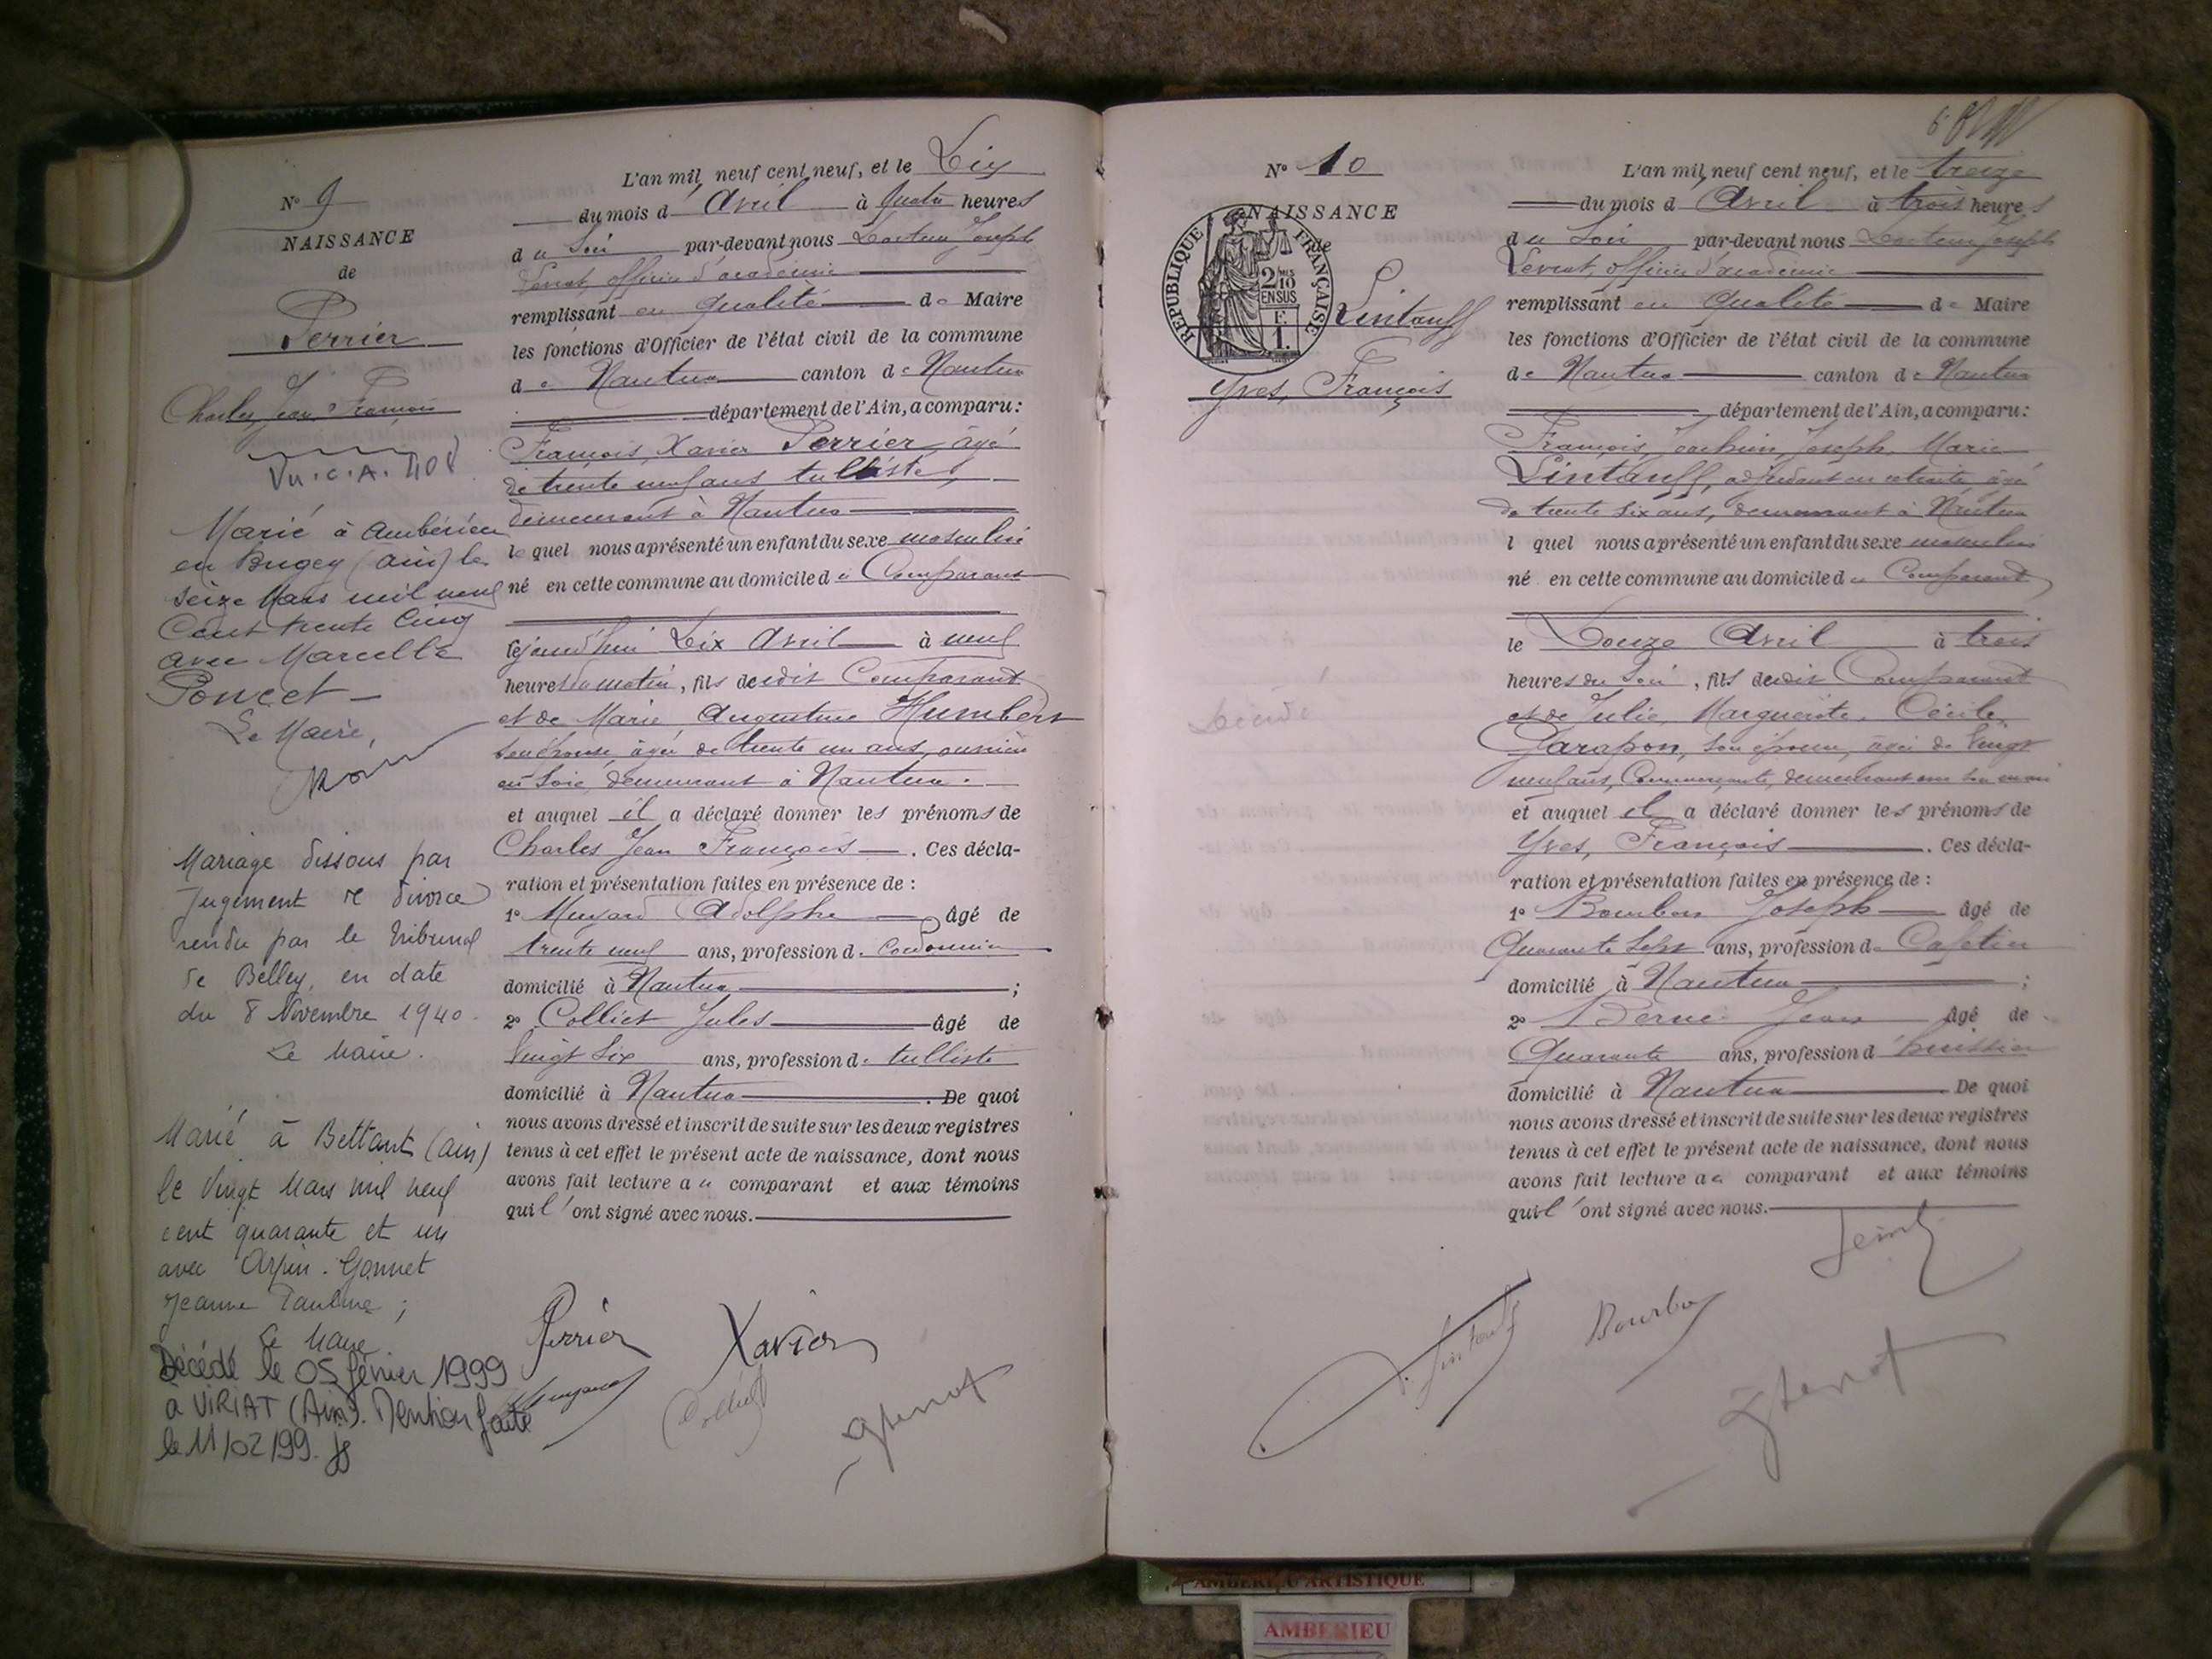 N° 9
NAISSANCE
de
Perrier
Charles Jean François
Vu. C. A.
Marié à Ambérieu
en Bugey (Ain) le
seize Mars mil neuf
cent trente cinq
avec Marcelle
Poncet
Le Maire,
Mariage dissous par
jugement de divorce
rendu par le tribunal
de Belley, en date
du 8 Novembre 1940.
Le Maire.
Marié à Bettant (Ain)
le vingt Mars mil neuf
cent quarante et un
avec Arpin-Gonnet
Jeanne Pauline ;
Le Maire
Décédé le 05 février 1999
à VIRIAT (Ain). Mention faite
le 11/02/99.
L'an mil neuf cent neuf, et le Dix
du mois d'Avril à quatre heures
du soir par-devant nous Docteur Joseph
officier d'académie
remplissant en qualité de Maire
les fonctions d'Officier de l'état civil de la commune
de Nantua canton de Nantua
département de l'Ain, a comparu :
François, Xavier Perrier, âgé
de trente neuf ans tulliste,
demeurant à Nantua
lequel nous a présenté un enfant du sexe masculin
né en cette commune au domicile du Comparant
le jourd'hui Dix Avril à neuf
heures du matin, fils de
dit Comparant
et de Marie Augustine Humbert
son épouse, âgée de trente un ans, ouvrière
en soie, demeurant à Nantua.
et auquel il a déclaré donner les prénoms de
Charles Jean François. Ces décla-
ration et présentation faites en présence de :
1° Adolphe âgé de
trente neuf ans, profession de Cordonnier
domicilié à Nantua ;
2° Colliet Jules âgé de
vingt six ans, profession de tulliste
domicilié à Nantua. De quoi
nous avons dressé et inscrit de suite sur les deux registres
tenus à cet effet le présent acte de naissance, dont nous
avons fait lecture au comparant et aux témoins
qui l'ont signé avec nous.
Perrier Xavier
Colliet
N° 10
NAISSANCE
de
Lintauff
Yves, François
RÉPUBLIQUE FRANÇAISE
2/10
EN SUS
F.
1.
L'an mil neuf cent neuf, et le treize
du mois d'Avril à trois heures
du soir par-devant nous Docteur Joseph
officier d'académie
remplissant en qualité de Maire
les fonctions d'Officier de l'état civil de la commune
de Nantua canton de Nantua
département de l'Ain, a comparu :
François, Joachim, Joseph, Marie
Lintauff, adjudant en retraite âgé
de trente six ans, demeurant à Nantua
l quel nous a présenté un enfant du sexe masculin
né en cette commune au domicile du Comparant
le Douze Avril à trois
heures du soir, fils dudit Comparant
et de Julie, Marguerite, Cécile
Garapon, son épouse, âgée de vingt
neuf ans, Commerçante, demeurant avec son mari
et auquel il a déclaré donner les prénoms de
Yves, François. Ces décla-
ration et présentation faites en présence de :
1° Bourbon Joseph âgé de
Quarante sept ans, profession de Cafetier
domicilié à Nantua ;
2° Jean âgé de
Quarante ans, profession d'huissier
domicilié à Nantua. De quoi
nous avons dressé et inscrit de suite sur les deux registres
tenus à cet effet le présent acte de naissance, dont nous
avons fait lecture au comparant et aux témoins
qui l'ont signé avec nous.
Bourbon
AMBERIEU ARTISTIQUE
AMBERIEU